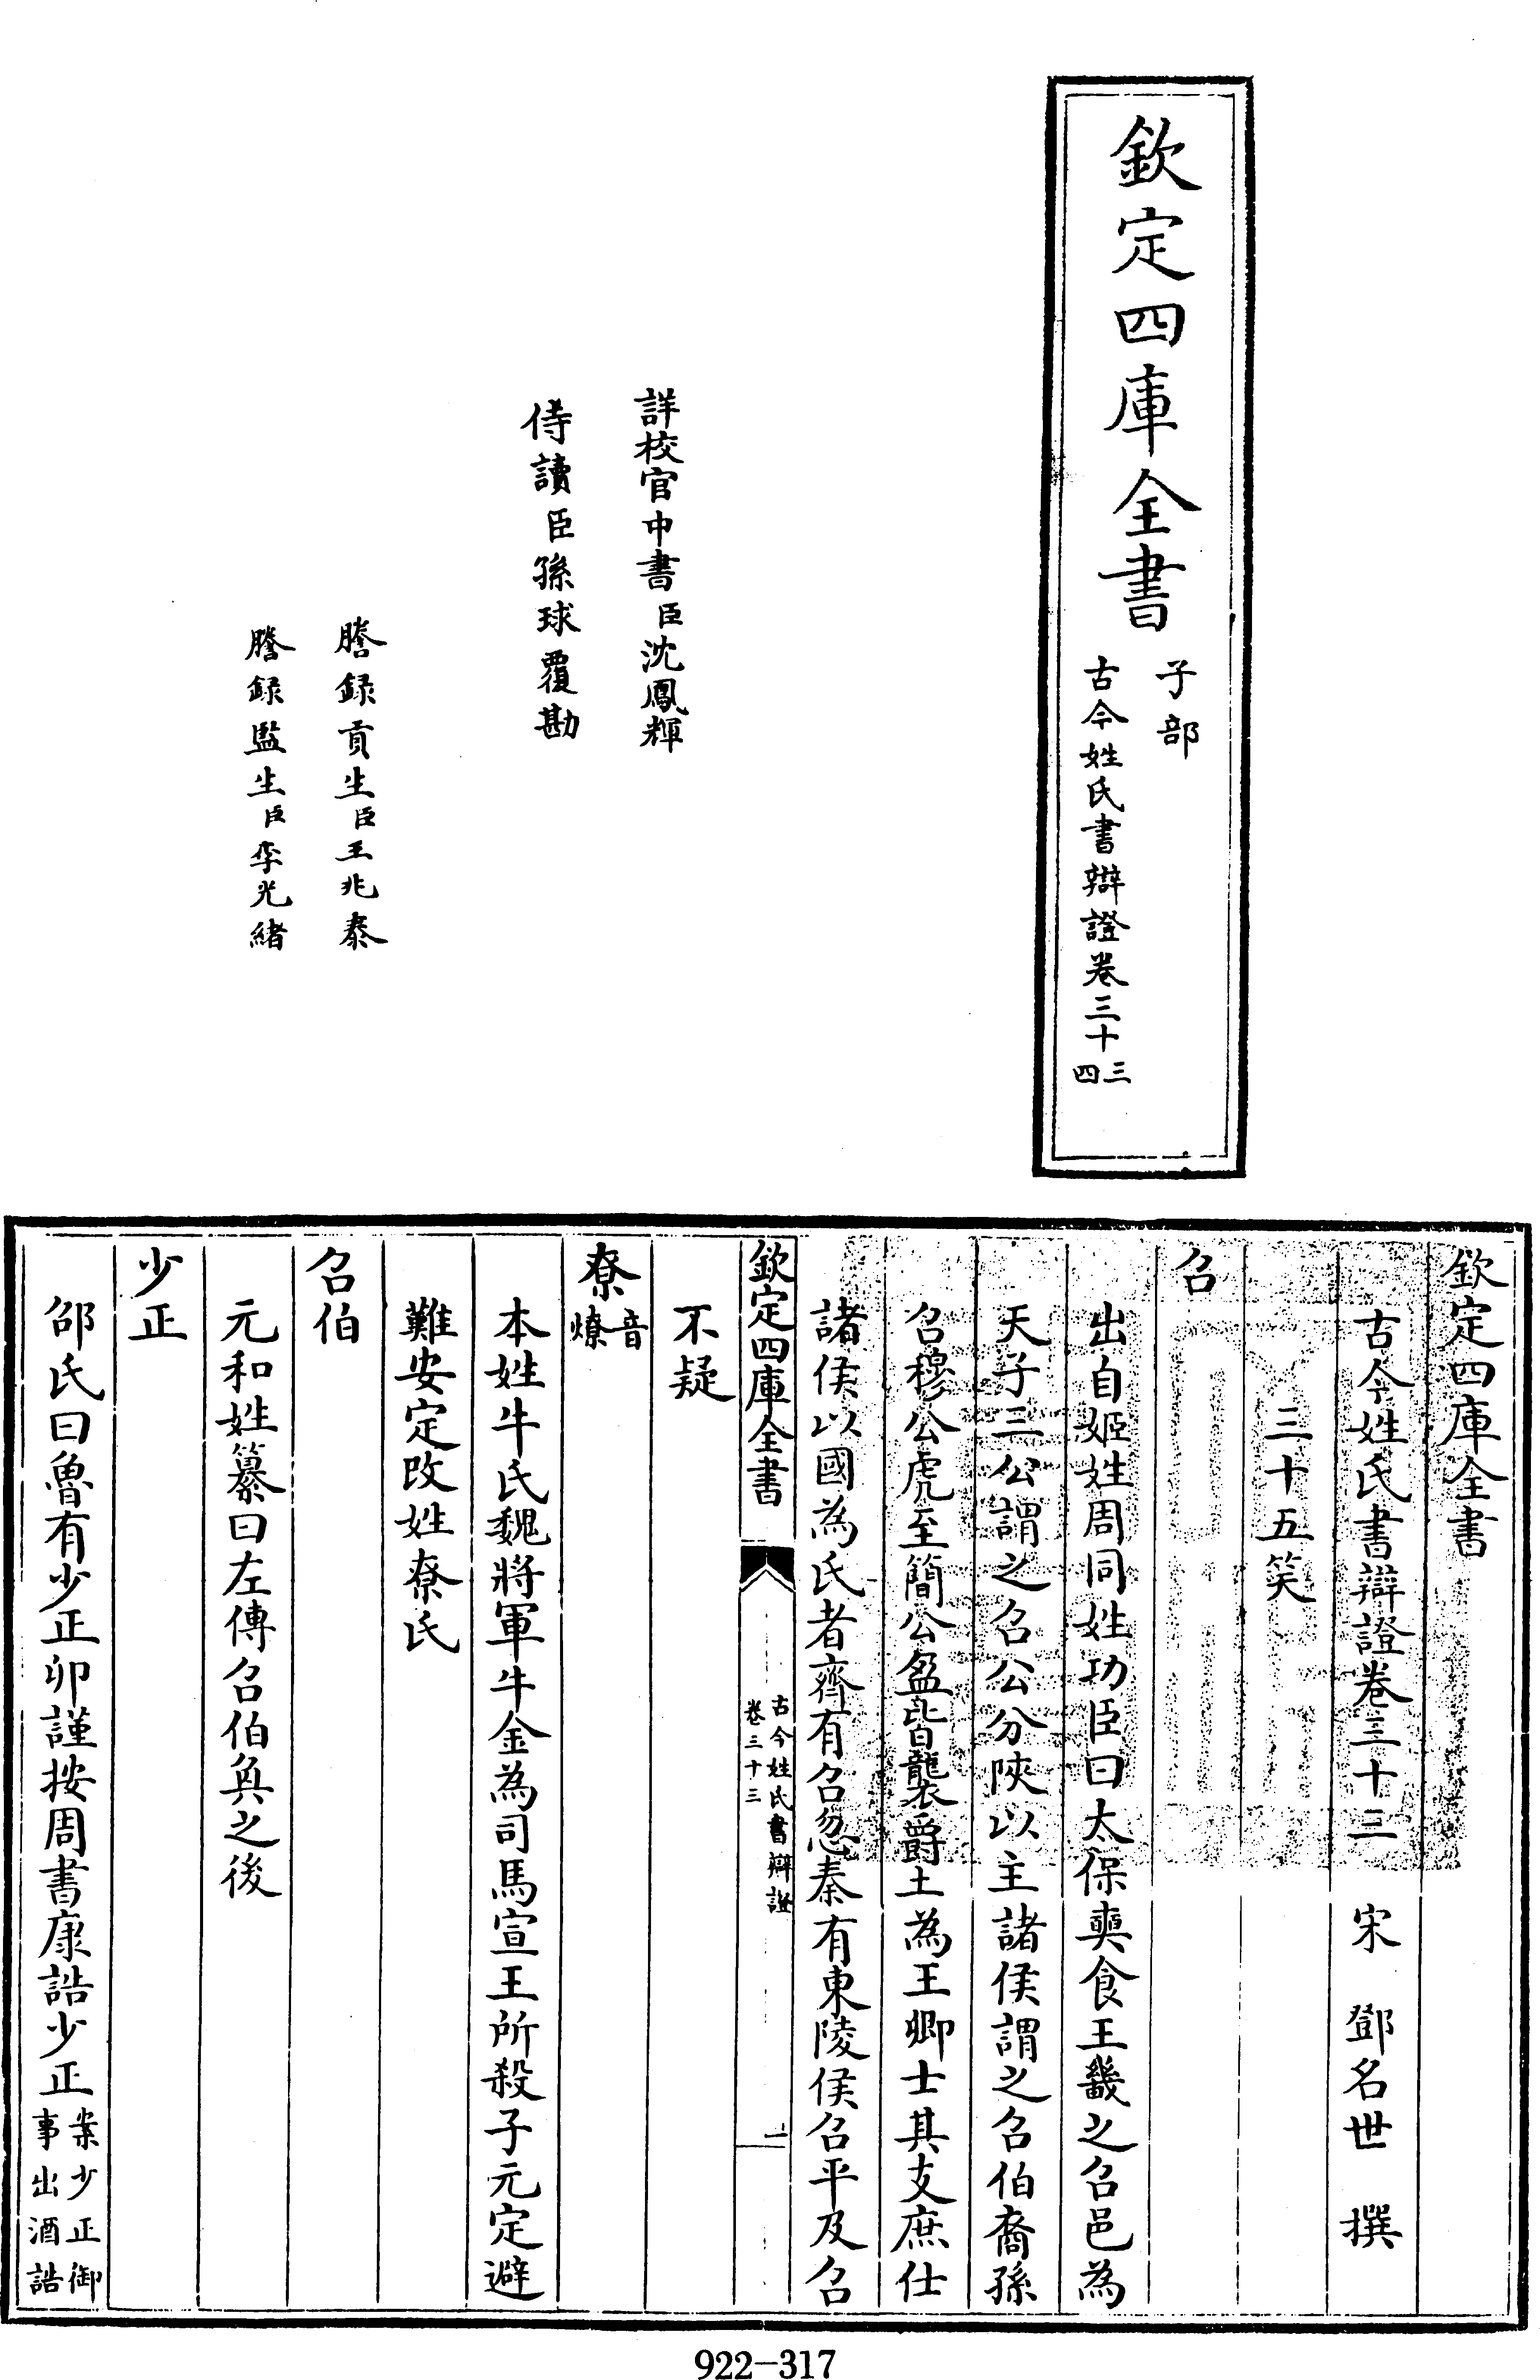 欽定四庫全書
子部
古今姓氏書辯證卷三十三
四
詳校官中書臣沈鳳輝
侍讀臣孫球覆勘
謄録貢生臣王兆泰
謄録監生臣李光緒
欽定四庫全書
古今姓氏書辯證卷三十三 宋 鄧名世 撰
三十五笑
召
出自姬姓周同姓功臣曰太保奭食王畿之召邑為
天子三公謂之召公分陜以主諸侯謂之召伯裔孫
召穆公虎至簡公盈皆襲爵土為王卿士其支庶仕
諸侯以國為氏者齊有召忽秦有東陵侯召平及召
欽定四庫全書
古今姓氏書辯證
卷三十三
一
不疑
尞音燎
本姓牛氏魏將軍牛金為司馬宣王所殺子元定避
難安定改姓尞氏
召伯
元和姓纂曰左傳召伯奐之後
少正
邵氏曰魯有少正卯謹按周書康誥少正案少正御
事出酒誥
922-317